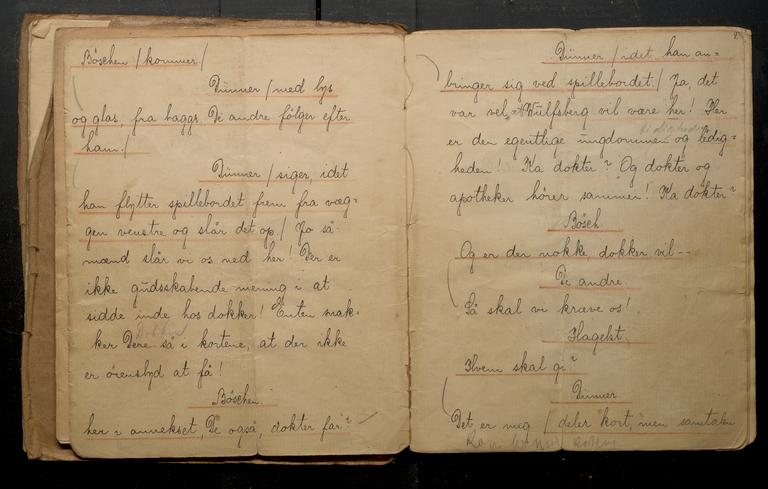 Böschen /kommer/
Dünner /med lys
og glas, fra baggr. De andre følger efter
ham./
Dünner /siger, idet
han flytter spillebordet frem fra væg-
gen venstre og slår det op./ Jo så
mænd slår vi os ned her! Der er
ikke gudsskabende mening i at
sidde inde hos dokker! Enten snak-
ker Dere så i kortene, at der ikke
er ørenslyd at få!
Böschen.
her i annekset, De også, dokter får?
Dünner /idet han an-
bringer sig ved spillebordet./ Ja, det
var vel, Wulfsberg vil være her! Her
er den egentlige ungdommen og ledig-
heden! Ka dokter? Og dokter og
apotheker hører sammen! Ka dokter?
Bösch.
Og er der nokke dokker vil --
De andre.
Så skal vi kræve os!
Hagelst.
Hvem skal gi?
Dünner
Det er mig /deler kort, men samtalen